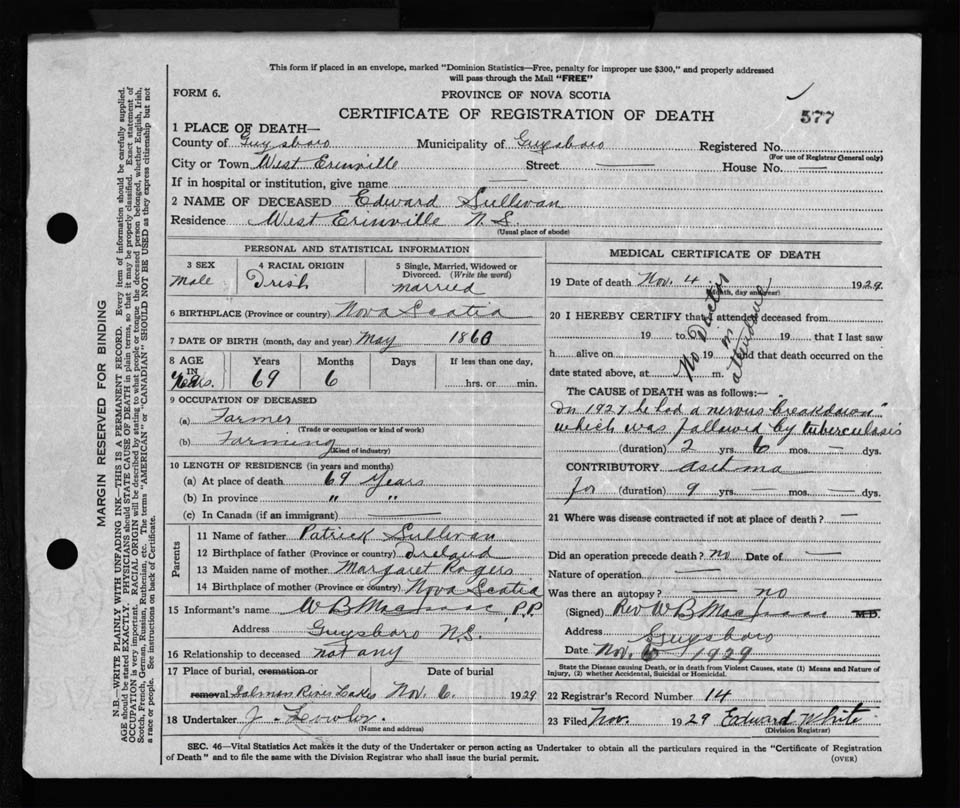 This form if placed in an envelope, marked "Dominion Statistics—Free, penalty for improper use $300," and properly addressed
will pass through the Mail "FREE"
FORM 6.
PROVINCE OF NOVA SCOTIA
CERTIFICATE OF REGISTRATION OF DEATH
577
1 PLACE OF DEATH—
County of Guysboro Municipality of Guysboro Registered No.
(For use of Registrar General only)
City or Town West Erinville Street — House No. —
If in hospital or institution, give name —
2 NAME OF DECEASED Edward Sullivan
Residence West Erinville N.S.
(Usual place of abode)
PERSONAL AND STATISTICAL INFORMATION
3 SEX
Male
4 RACIAL ORIGIN
Irish
5 Single, Married, Widowed or
Divorced. (Write the word)
married
6 BIRTHPLACE (Province or country) Nova Scotia
7 DATE OF BIRTH (month, day and year) May 1860
8 AGE
IN
Years Months Days If less than one day,
69 6 hrs. or min.
9 OCCUPATION OF DECEASED
(a) Farmer
(Trade or occupation or kind of work)
(b) Farming
(Kind of industry)
10 LENGTH OF RESIDENCE (in years and months)
(a) At place of death 69 Years
(b) In province " "
(c) In Canada (if an immigrant) —
Parents
11 Name of father Patrick Sullivan
12 Birthplace of father (Province or country) Ireland
13 Maiden name of mother Margaret Rogers
14 Birthplace of mother (Province or country) Nova Scotia
15 Informant's name W B MacIsaac P.P.
Address Guysboro N.S.
16 Relationship to deceased not any
17 Place of burial, cremation or Date of burial
removal Salmon River Lakes Nov. 6 1929
18 Undertaker J. Fowler.
(Name and address)
MEDICAL CERTIFICATE OF DEATH
19 Date of death Nov. 4 1929.
(Month, day and year)
20 I HEREBY CERTIFY that I attended deceased from
19 to 19 that I last saw
h alive on 19 and that death occurred on the
date stated above, at m.
No Doctor
in
attendance
The CAUSE of DEATH was as follows:-
In 1927 he had a nervous breakdown"
which was followed by tuberculosis
(duration) 2 yrs. 6 mos. — dys.
CONTRIBUTORY asthma
for (duration) 9 yrs. — mos. — dys.
21 Where was disease contracted if not at place of death? —
Did an operation precede death? no Date of —
Nature of operation —
Was there an autopsy? — no
(Signed) Rev. W B MacIsaac M.D.
Address Guysboro
Date Nov. 6 1929
State the Disease causing Death, or in death from Violent Causes, state (1) Means and Nature of
Injury, (2) whether Accidental, Suicidal or Homicidal.
22 Registrar's Record Number 14
23 Filed Nov. 1929 Edward White
(Division Registrar)
SEC. 46—Vital Statistics Act makes it the duty of the Undertaker or person acting as Undertaker to obtain all the particulars required in the "Certificate of Registration
of Death" and to file the same with the Division Registrar who shall issue the burial permit.
(OVER)
MARGIN RESERVED FOR BINDING
N.B.—WRITE PLAINLY WITH UNFADING INK—THIS IS A PERMANENT RECORD. Every item of information should be carefully supplied.
AGE should be stated EXACTLY. PHYSICIANS should STATE CAUSE OF DEATH in plain terms, so that it may be properly classified. Exact statement of
OCCUPATION is very important. RACIAL ORIGIN will be described by stating to what people or tongue the deceased person belonged, whether English, Irish,
Scotch, French, German, Russian, Ruthenian, etc. The terms "AMERICAN" or "CANADIAN" SHOULD NOT BE USED as they express citizenship but not
a race or people. See instructions on back of Certificate.